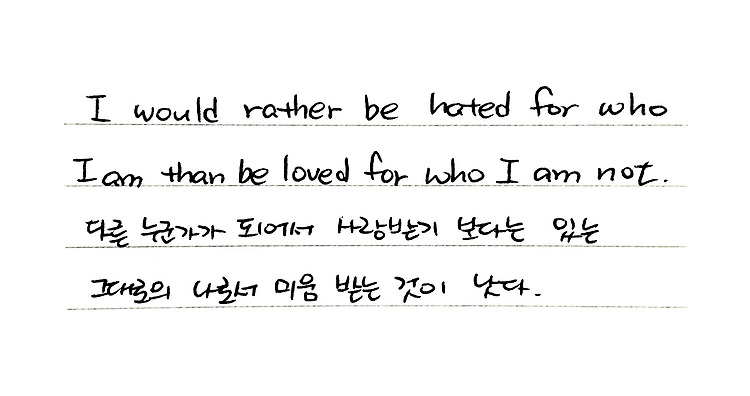 I would rather be hated for who
I am than be loved for who I am not.
다른 누군가가 되에서 사랑받기 보다는 있는
그대로의 나로서 미움 받는 것이 낫다.